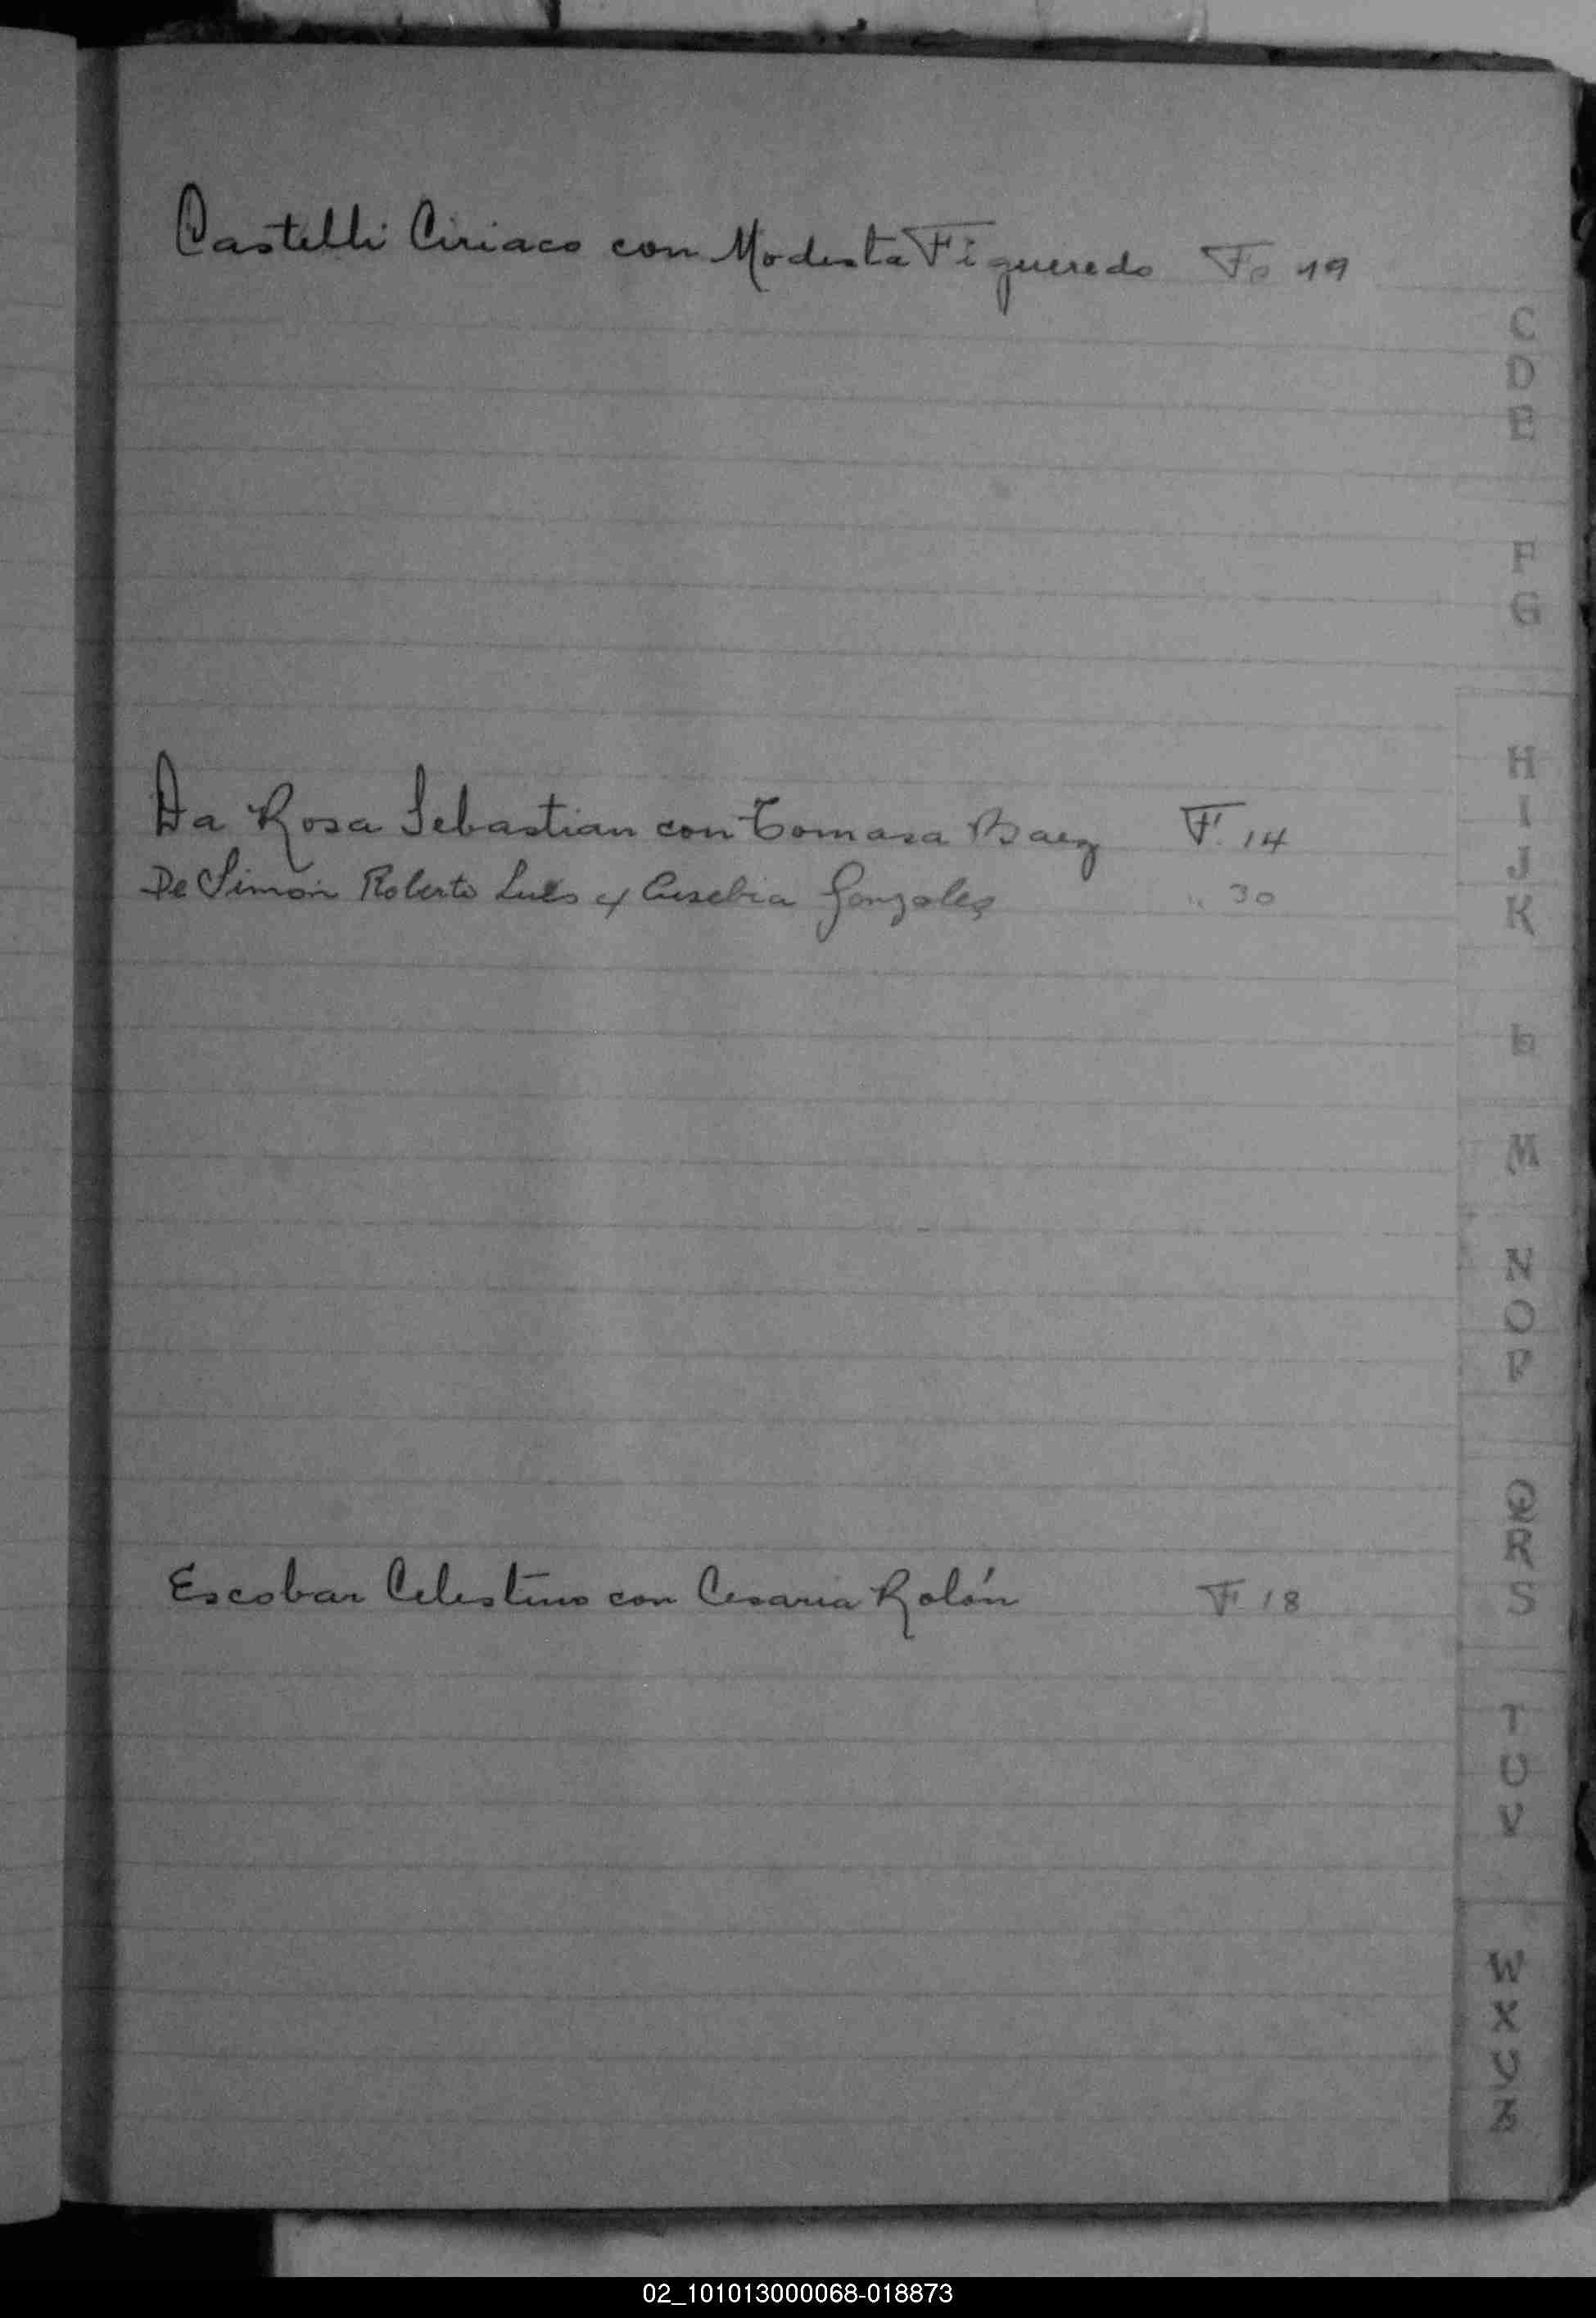 Castelli Ciriaco con Modesta Figueredo Fo 19
C
D
E
F
G
Da Rosa Sebastian con Tomasa Baez F. 14
De Simón Roberto Luis y Eusebia Gonzalez " 30
H
I
J
K
L
M
N
O
P
Escobar Celestino con Cesaria Rolón F. 18
Q
R
S
T
U
V
W
X
Y
Z
02_101013000068-018873